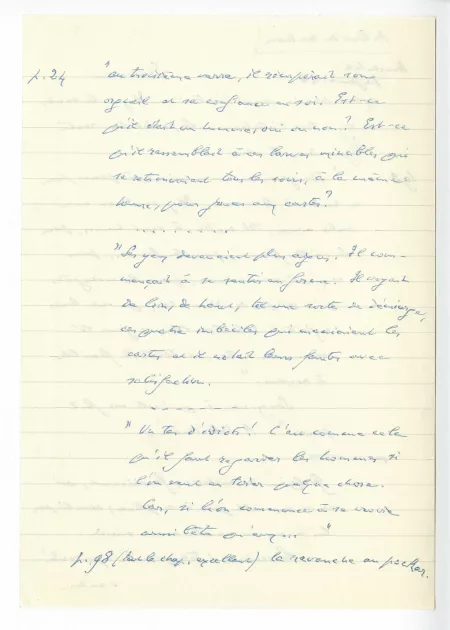 p. 24 "au troisième verre, il récupérait son
orgueil et sa confiance en soi. Est-ce
qu'il était un homme, oui ou non? Est-ce
qu'il ressemblait à ces larves minables qui
se retrouvaient tous les soirs, à la même
heure, pour jouer aux cartes?
. . . . . . . . . .
"Ses yeux devenaient plus aigus. Il com-
mençait à se sentir en forme. Il voyait
de loin, de haut, tel une sorte de démiurge,
ces quatre imbéciles qui maniaient les
cartes et il notait leurs fautes avec
satisfaction.
- - - - - - - -
"Un tas d'idiots! C'est comme cela
qu'il faut regarder les hommes si
l'on veut en tirer quelque chose.
Car, si l'on commence à se croire
aussi bête qu'eux... "
p. 98 (tout le chap. excellent) la revanche au poker.